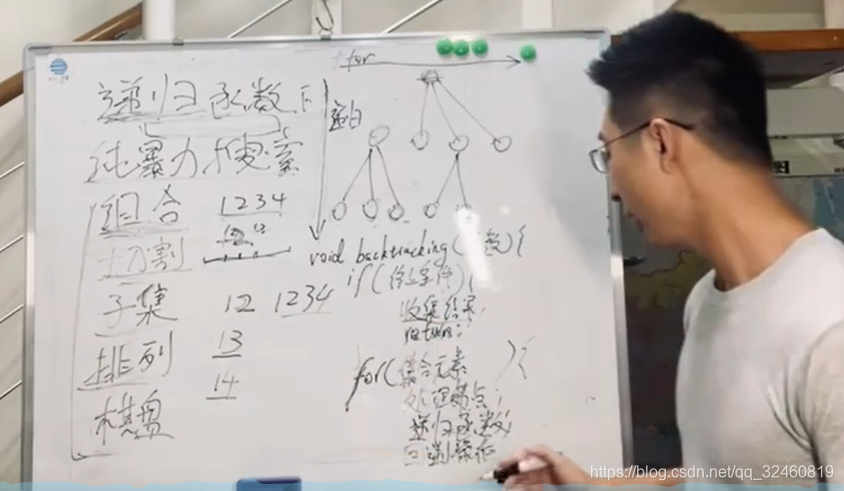 递归函数下
纯暴力搜索
组合 1234
切割
子集 12 1234
排列 13
14
棋盘
for
递归
void backtracking(参数){
if(终止条件){
收集结果
return;
for(集合元素){
处理节点;
递归函数;
回溯操作
https://blog.csdn.net/qq_32460819